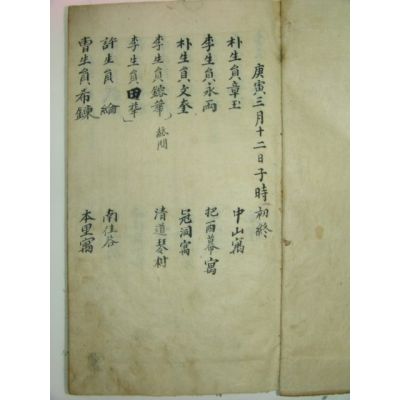 庚寅三月十二日子時初終
朴生員章玉 中山寓
李生員永兩 把酉幕寓
朴生員文奎 冠洞寓
李生員鎵華 「終聞 清道琴村
李生員田華」
許生員綸 南佳谷
曺生員希鍊 本里寓